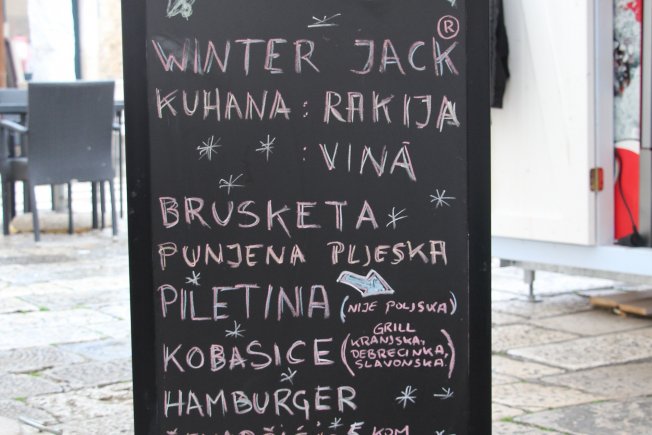 WINTER JACK ®
KUHANA : RAKIJA
: VINA
BRUSKETA
PUNJENA PLJESKA
PILETINA (NIJE POLJSKA)
KOBASICE (GRILL
KRANJSKA,
DEBRECINKA,
SLAVONSKA.)
HAMBURGER
5 KOM